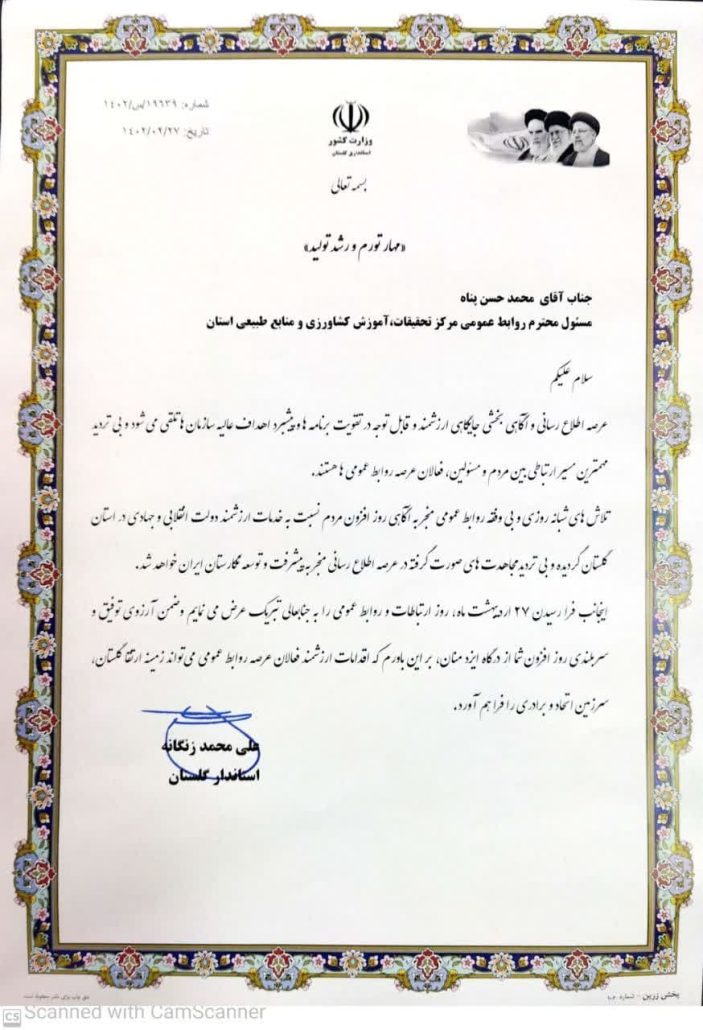 شماره: ۱۹۶۳۹/م/۱۴۰۲
تاریخ: ۱۴۰۲/۰۲/۲۷
وزارت کشور
استانداری گلستان
بسمه تعالی
«مهار تورم و رشد تولید»
جناب آقای محمد حسن پناه
مسئول محترم روابط عمومی مرکز تحقیقات،آموزش کشاورزی و منابع طبیعی استان
سلام علیکم
عرصه اطلاع رسانی و آگاهی بخشی جایگاهی ارزشمند و قابل توجه در تقویت برنامه ها و پیشبرد اهداف عالیه سازمان ها تلقی می شود و بی تردید
مهمترین مسیر ارتباطی بین مردم و مسئولین، فعالان عرصه روابط عمومی ها هستند.
تلاش های شبانه روزی و بی وقفه روابط عمومی منجر به آگاهی روز افزون مردم نسبت به خدمات ارزشمند دولت انقلابی و جهادی در استان
گلستان گردیده و بی تردید مجاهدت های صورت گرفته در عرصه اطلاع رسانی منجر به پیشرفت و توسعه نگارستان ایران خواهد شد.
اینجانب فرا رسیدن ۲۷ اردیبهشت ماه، روز ارتباطات و روابط عمومی را به جنابعالی تبریک عرض می نمایم و ضمن آرزوی توفیق و
سربلندی روز افزون شما از درگاه ایزد منان، بر این باورم که اقدامات ارزشمند فعالان عرصه روابط عمومی می تواند زمینه ارتقا گلستان،
سرزمین اتحاد و برادری را فراهم آورد.
علی محمد زنگانه
استاندار گلستان
پخش زرین - شماره ۱۰۶
حق چاپ برای ناشر محفوظ است
CS Scanned with CamScanner